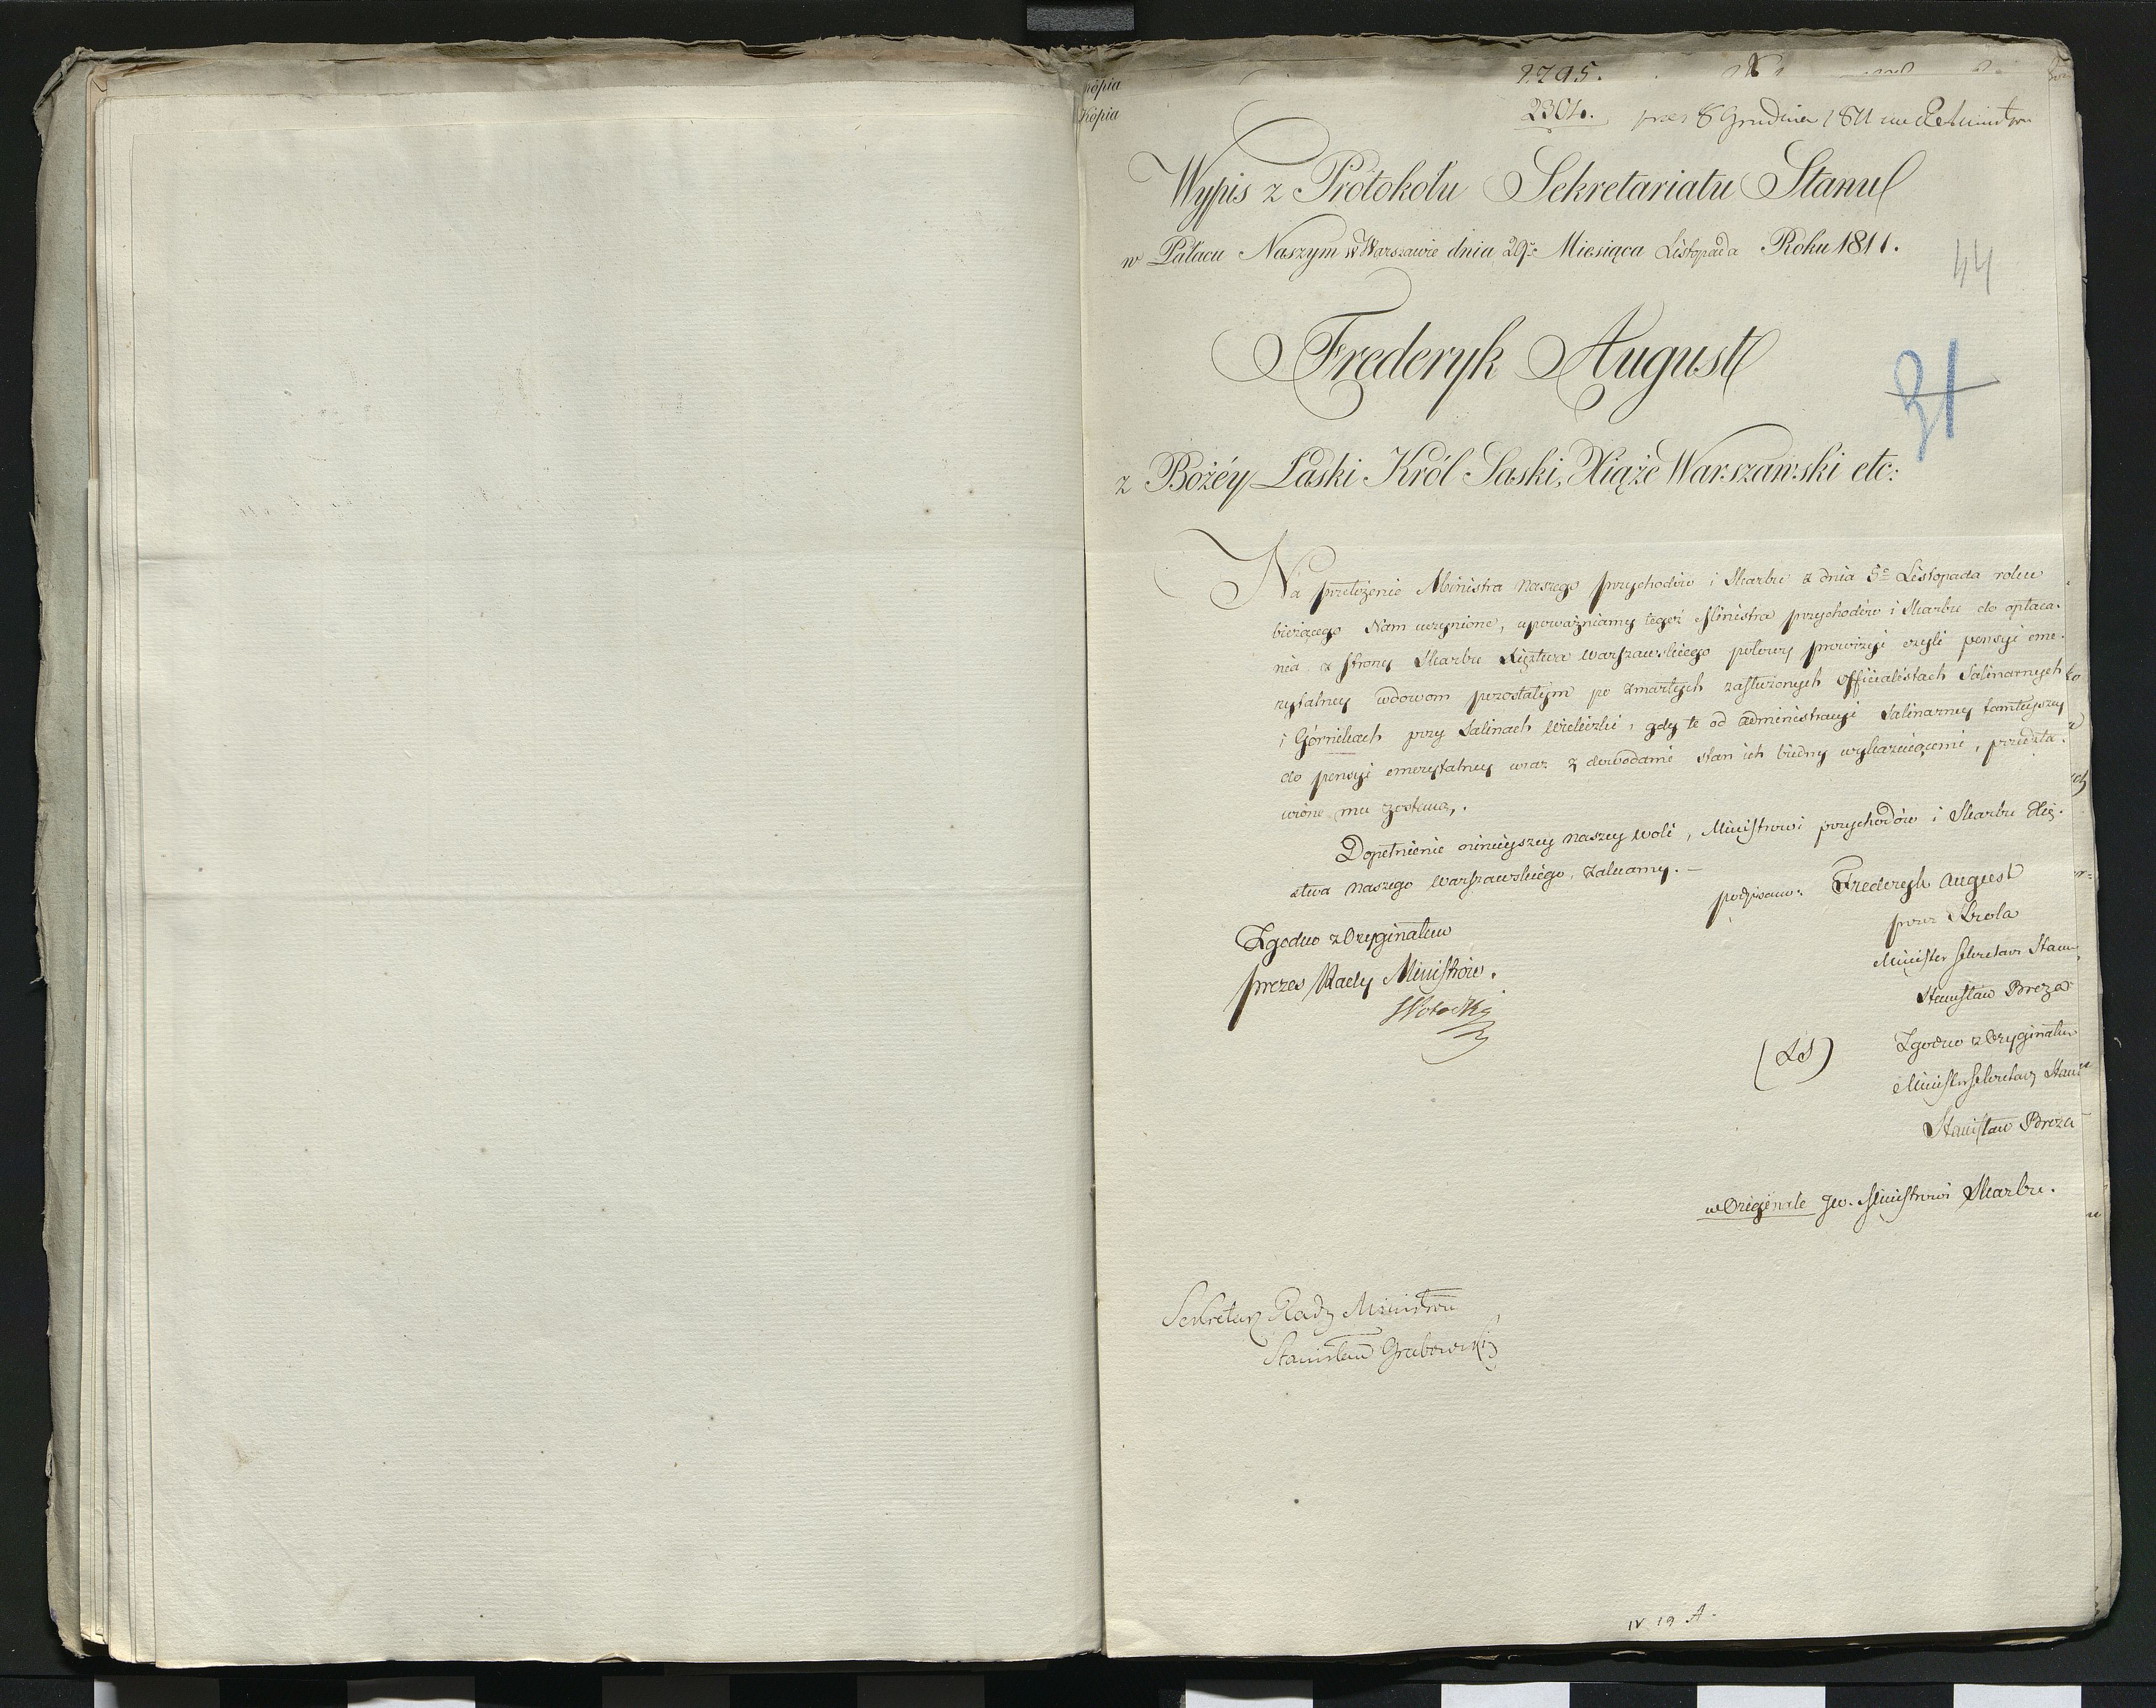 Kopia
Kopia
2795.
2304. prez 8 Grudnia 1811
Wypis z Protokołu Sekretariatu Stanu
w Pałacu Naszym w Warszawie dnia 29º Miesiąca Listopada Roku 1811.
44
Frederyk August
31
z Bożéy Łaski Król Saski, Xiąże Warszawski etc:
Na przełożenie Ministra Naszego przychodów i Skarbu z dnia 5º Listopada roku
bieżącego Nam uczynione, upoważniamy tegoż Ministra przychodów i Skarbu do opłaca-
nia z strony Skarbu Xięztwa Warszawskiego połowy prowizyi czyli pensyi eme-
rytalney wdowom pozostałym po zmarłych zasłużonych officialistach Salinarnych
i Górnikach przy Salinach Wieliczki, gdy te od administracyi Salinarney tamteyszey
do pensyi emerytalney wraz z dowodami stan ich biedny wykazuiącemi, przedsta-
wione mu zostaną.
Dopełnienie ninieyszey naszey woli, Ministrowi przychodów i Skarbu Xię-
ztwa naszego Warszawskiego, zalecamy. —
podpisano: Frederyk August
przez Króla
Minister Sekretarz Stanu
Stanisław Breza
Zgodno z Oryginałem
prezes Rady Ministrów.
SPotocki
(LS)
Zgodno z Oryginałem
Minister Sekretarz Stanu
Stanisław Breza
w Originale Jw. Ministrowi Skarbu.
Sekretarz Rady Ministrów
Stanisław Grabowski
IV 19 A.